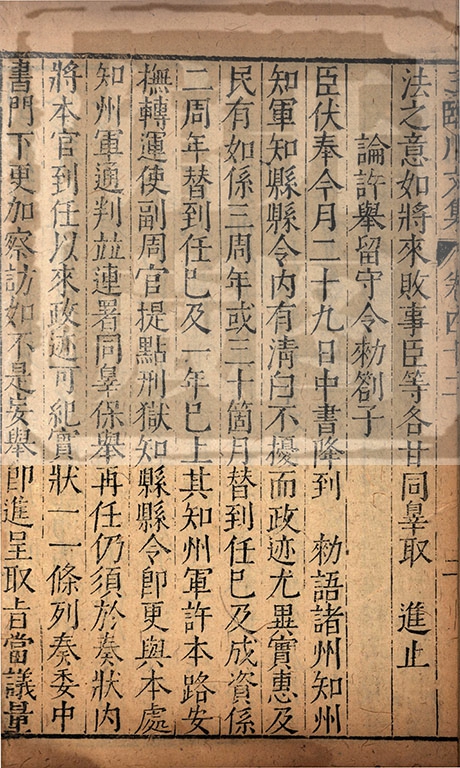 臨川文集 卷四十
法之意如將來敗事臣等各甘同辠取 進止
論許舉留守令勑劄子
臣伏奉今月二十九日中書降到 勑語諸州知州
知軍知縣縣令內有清白不擾而政迹尤異實惠及
民有如係三周年或三十箇月替到任巳及成資係
二周年替到任巳及一年巳上其知州軍許本路安
撫轉運使副周官提點刑獄知縣縣令即更與本處
知州軍通判並連署同辠保舉再任仍須於奏狀內
將本官到任以來政迹可紀實狀一一條列奏委中
書門下更加察訪如不是妄舉即進呈取旨當議量